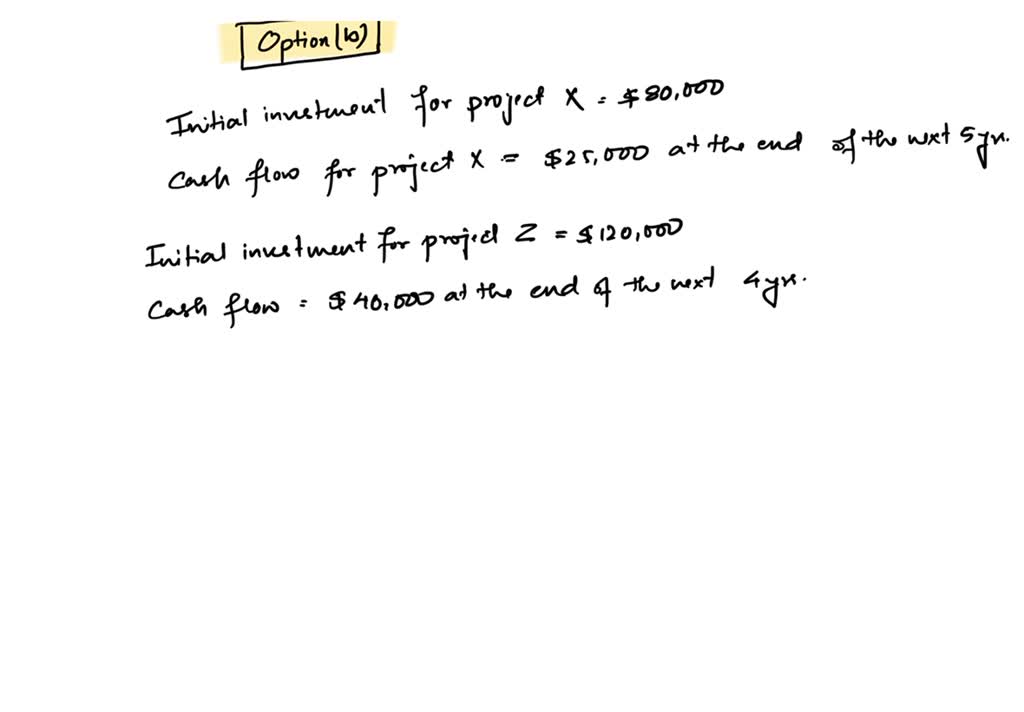 Option (b)
Initial investment for project X = $80,000
Cash flow for project X = $25,000 at the end of the next 5 yr.
Initial investment for project Z = $120,000
Cash flow = $40,000 at the end of the next 4 yr.